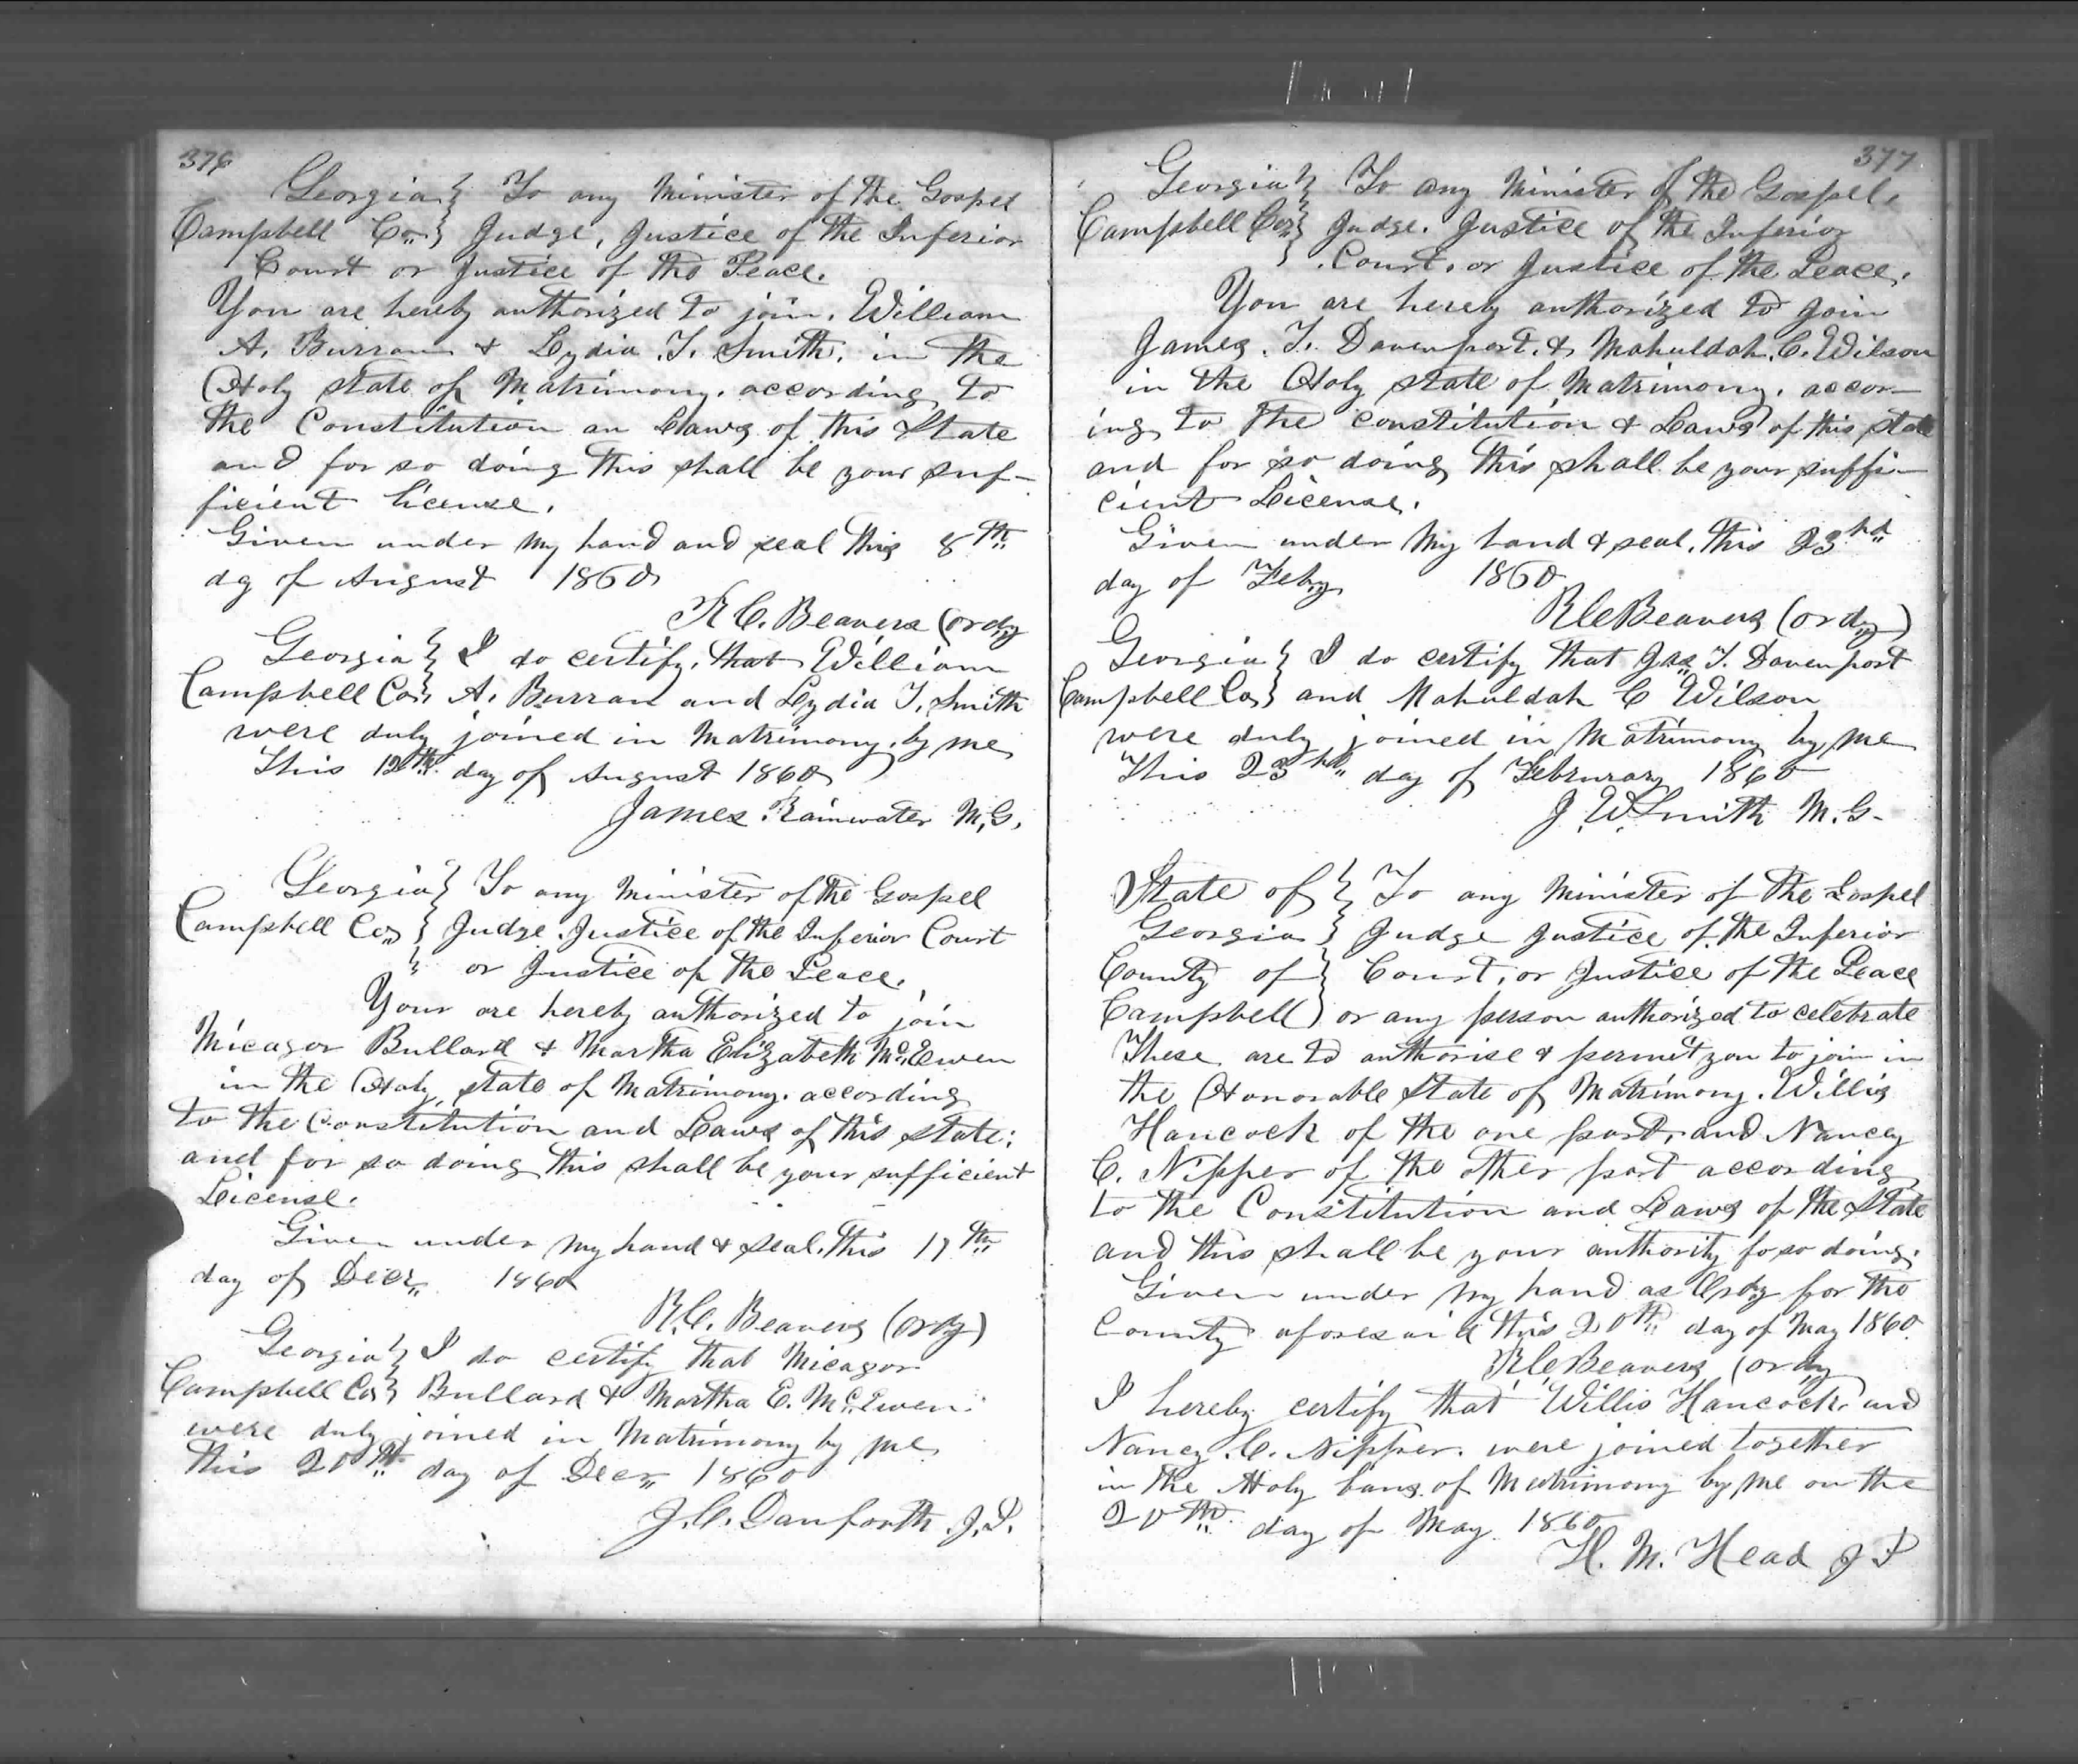 376
Georgia } To any Minister of the Gospel
Campbell Co,, } Judge, Justice of the Inferior
Court or Justice of the Peace.
You are hereby authorized to join, William
A. Burran & Lydia T. Smith, in the
Holy state of Matrimony, according to
the Constitution an Laws of this State
and for so doing this shall be your suf-
ficient license.
Given under my hand and seal this 8th,,
dy of August 1860
R. C. Beavers (ordy
Georgia } I do certify, that William
Campbell Co,, } A. Burran and Lydia T. Smith
were duly joined in Matrimony, by me
This 12th,, day of August 1860
James Rainwater M.G.
Georgia } To any Minister of the Gospell
Campbell Co,, } Judge Justice of the Inferior Court
} or Justice of the Peace.
Your are hereby authorized to join
Micager Bullard & Martha Elizabeth McEwen
in the Holy state of Matrimony, according
to the Constitution and Laws of this state;
and for so doing this shall be your sufficient
License.
Given under my hand & seal, this 17th,,
day of Decr,, 1860
R. C. Beavers (ordy)
Georgia } I do certify that Micager
Campbell Co } Bullard & Martha E. McEwen
were duly joined in Matrimony by me
this 20th,, day of Decr,, 1860
J. C. Danforth J.P.
377
Georgia } To any Minister of the Gospel,
Campbell Co,, } Judge, Justice of the Inferior
} Court, or Justice of the Peace.
You are hereby authorized to join
James T. Davenport, & Mahuldah C. Wilson
in the Holy state of Matrimony, accor-
ing to the constitution & Laws of this state
and for so doing this shall be your suffi-
cient License.
Given under my hand & seal, this 23rd,,
day of Feby 1860
R C Beavers (ordy)
Georgia } I do certify that Jas T. Davenport
Campbell Co } and Mahuldah C Wilson
were duly joined in Matrimony by me
This 23rd,, day of Februrary 1860
J. W. Smith M.G.
State of } To any Minister of the Gospel
Georgia } Judge Justice of the Inferior
County of } Court, or Justice of the Peace
Campbell) or any person authorized to celebrate
These are to authorise & permit you to join in
the Honorable State of Matrimony, Willis
Hancock of the one part, and Nancy
C. Nipper of the other part according
to the Constitution and Laws of the State
and this shall be your authority fo so doing.
Given under my hand as Ordy for the
County aforesaid this 20th,, day of May 1860.
R C Beavers (ordy
I hereby certify that Willis Hancock and
Nancy C. Nipper were joined together
in the Holy bans of Matrimony by me on the
20th,, day of May 1860
H. M. Head J P